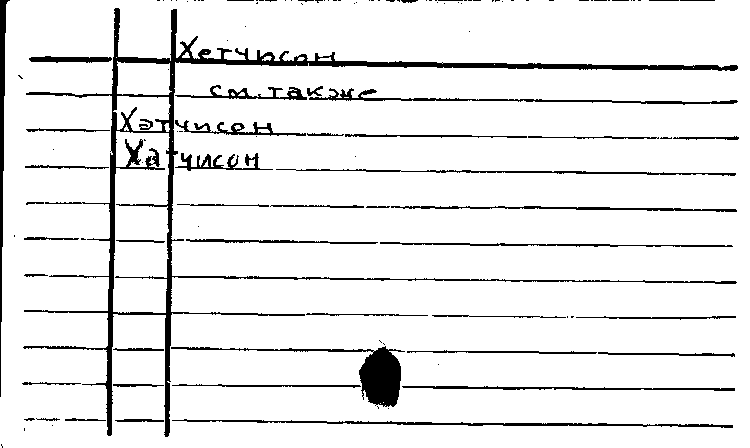 Хетчисон
см. также
Хэтчисон
Хатчисон